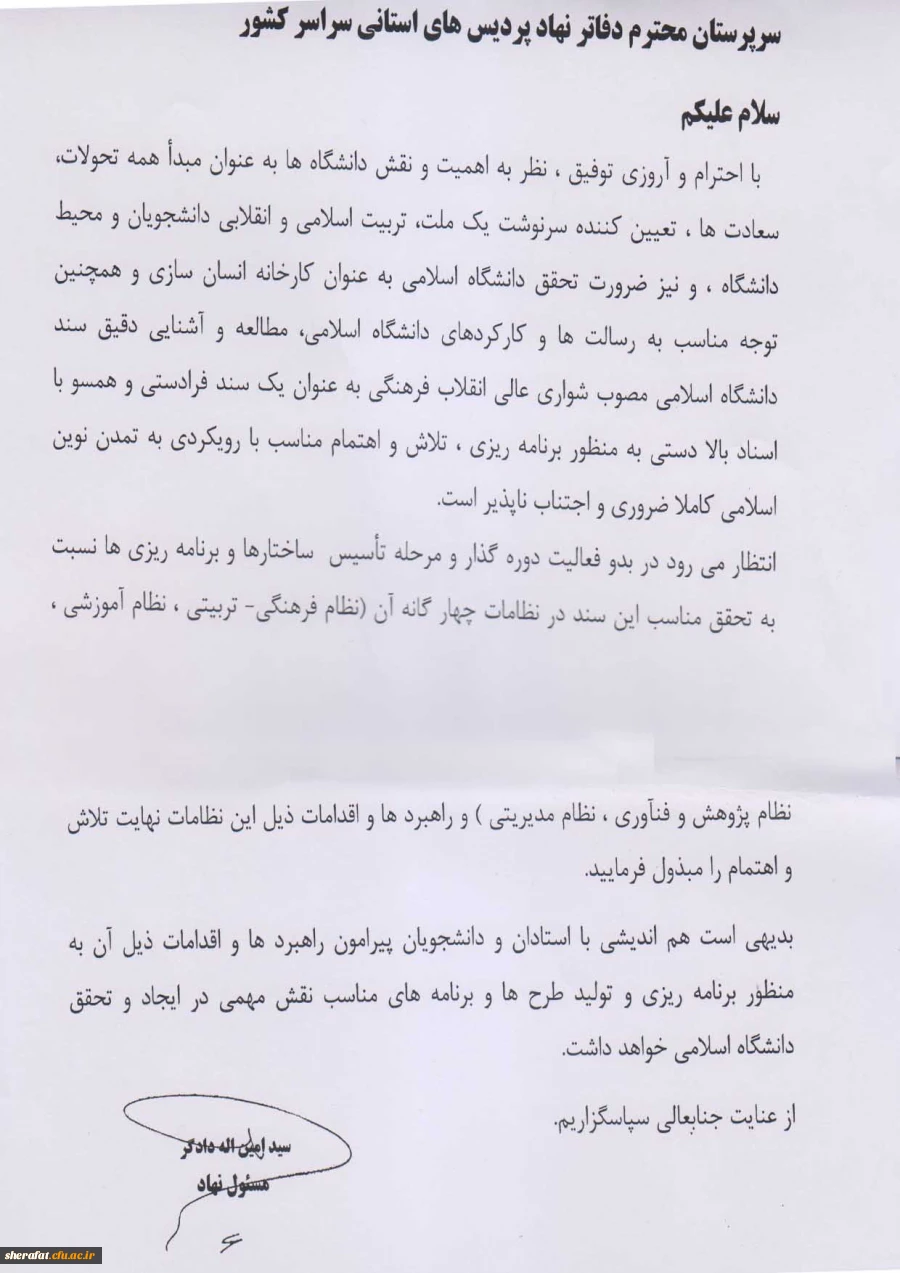 سرپرستان محترم دفاتر نهاد پردیس های استانی سراسر کشور
سلام علیکم
با احترام و آروزی توفیق ، نظر به اهمیت و نقش دانشگاه ها به عنوان مبدأ همه تحولات،
سعادت ها ، تعیین کننده سرنوشت یک ملت، تربیت اسلامی و انقلابی دانشجویان و محیط
دانشگاه ، و نیز ضرورت تحقق دانشگاه اسلامی به عنوان کارخانه انسان سازی و همچنین
توجه مناسب به رسالت ها و کارکردهای دانشگاه اسلامی، مطالعه و آشنایی دقیق سند
دانشگاه اسلامی مصوب شواری عالی انقلاب فرهنگی به عنوان یک سند فرادستی و همسو با
اسناد بالا دستی به منظور برنامه ریزی ، تلاش و اهتمام مناسب با رویکردی به تمدن نوین
اسلامی کاملا ضروری و اجتناب ناپذیر است.
انتظار می رود در بدو فعالیت دوره گذار و مرحله تأسیس ساختارها و برنامه ریزی ها نسبت
به تحقق مناسب این سند در نظامات چهار گانه آن (نظام فرهنگی- تربیتی ، نظام آموزشی ،
نظام پژوهش و فنآوری ، نظام مدیریتی ) و راهبرد ها و اقدامات ذیل این نظامات نهایت تلاش
و اهتمام را مبذول فرمایید.
بدیهی است هم اندیشی با استادان و دانشجویان پیرامون راهبرد ها و اقدامات ذیل آن به
منظور برنامه ریزی و تولید طرح ها و برنامه های مناسب نقش مهمی در ایجاد و تحقق
دانشگاه اسلامی خواهد داشت.
از عنایت جنابعالی سپاسگزاریم.
سید امین اله دادگر
مسئول نهاد
sherafat.cfu.ac.ir